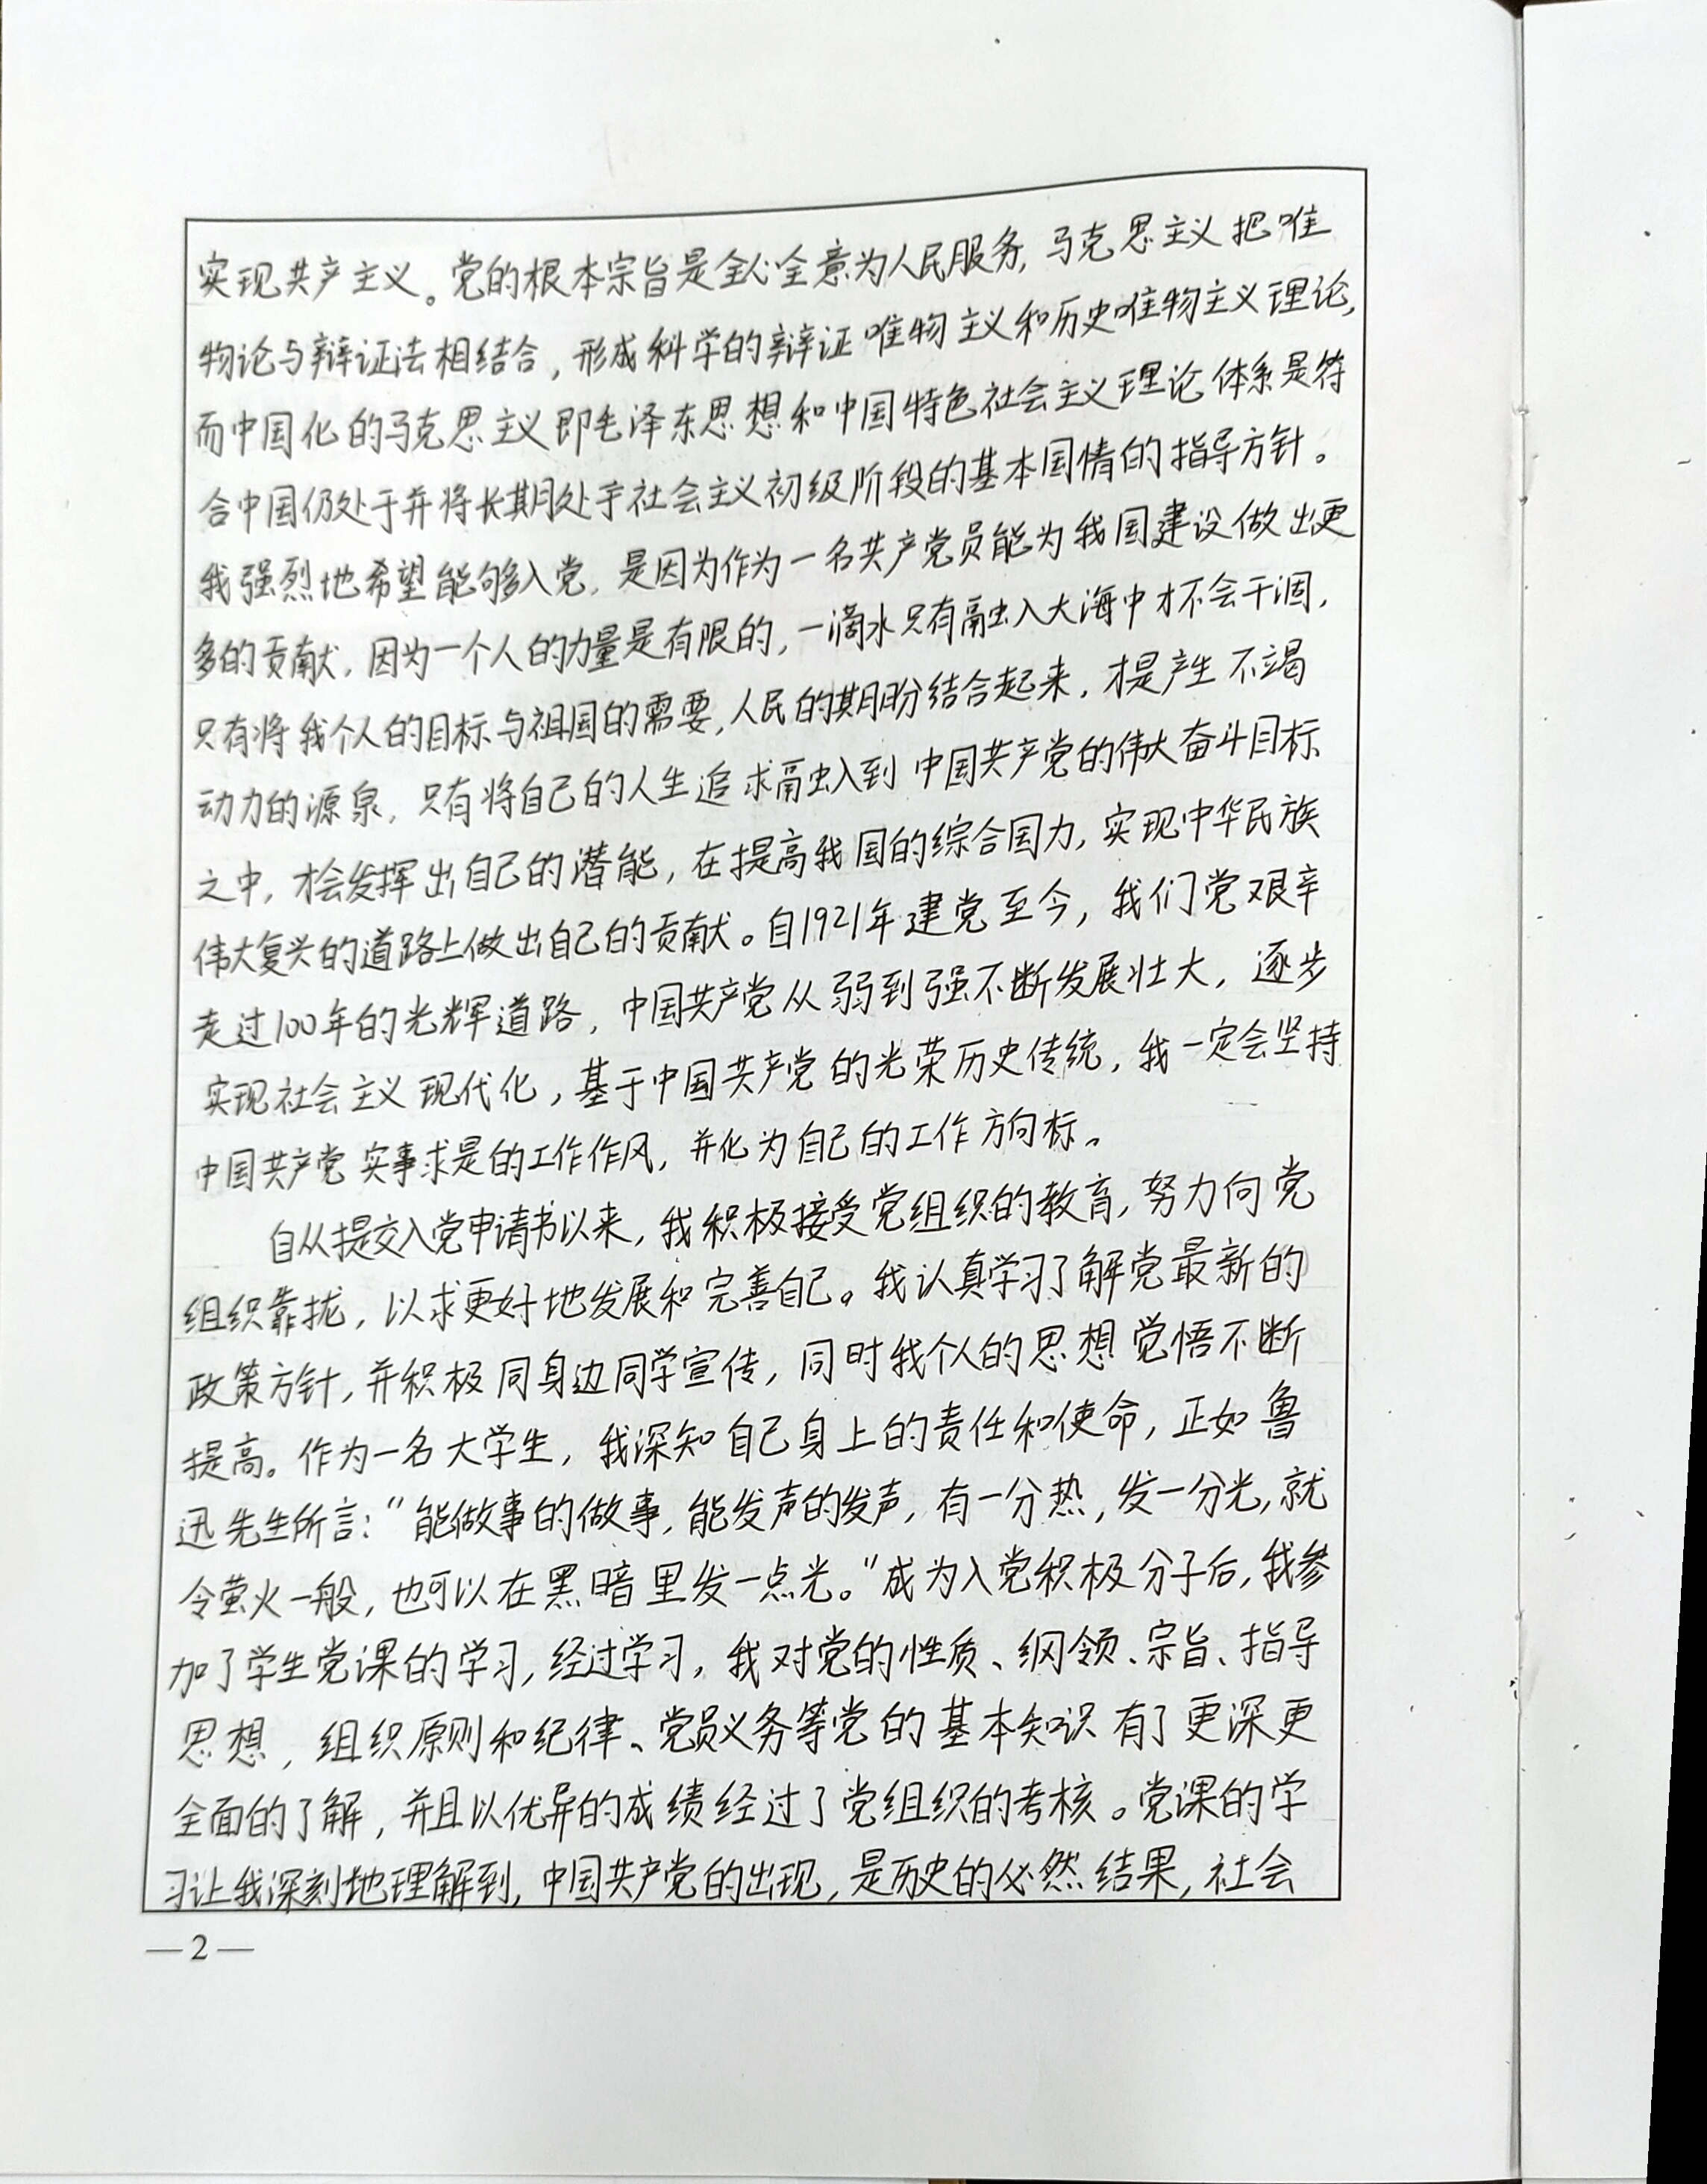 实现共产主义。党的根本宗旨是全心全意为人民服务,马克思主义把唯
物论与辩证法相结合,形成科学的辩证唯物主义和历史唯物主义理论,
而中国化的马克思主义即毛泽东思想和中国特色社会主义理论体系是符
合中国仍处于并将长期处于社会主义初级阶段的基本国情的指导方针。
我强烈地希望能够入党,是因为作为一名共产党员能为我国建设做出更
多的贡献,因为一个人的力量是有限的,一滴水只有融入大海中才不会干涸,
只有将我个人的目标与祖国的需要,人民的期盼结合起来,才是产生不竭
动力的源泉,只有将自己的人生追求融入到中国共产党的伟大奋斗目标
之中,才会发挥出自己的潜能,在提高我国的综合国力,实现中华民族
伟大复兴的道路上做出自己的贡献。自1921年建党至今,我们党艰辛
走过100年的光辉道路,中国共产党从弱到强不断发展壮大,逐步
实现社会主义现代化,基于中国共产党的光荣历史传统,我一定会坚持
中国共产党实事求是的工作作风,并化为自己的工作方向标。
自从提交入党申请书以来,我积极接受党组织的教育,努力向党
组织靠拢,以求更好地发展和完善自己。我认真学习了解党最新的
政策方针,并积极同身边同学宣传,同时我个人的思想觉悟不断
提高。作为一名大学生,我深知自己身上的责任和使命,正如鲁
迅先生所言:“能做事的做事,能发声的发声,有一分热,发一分光,就
令萤火一般,也可以在黑暗里发一点光。”成为入党积极分子后,我参
加了学生党课的学习,经过学习,我对党的性质、纲领、宗旨、指导
思想,组织原则和纪律、党员义务等党的基本知识有了更深更
全面的了解,并且以优异的成绩经过了党组织的考核。党课的学
习让我深刻地理解到,中国共产党的出现,是历史的必然结果,社会
—2—